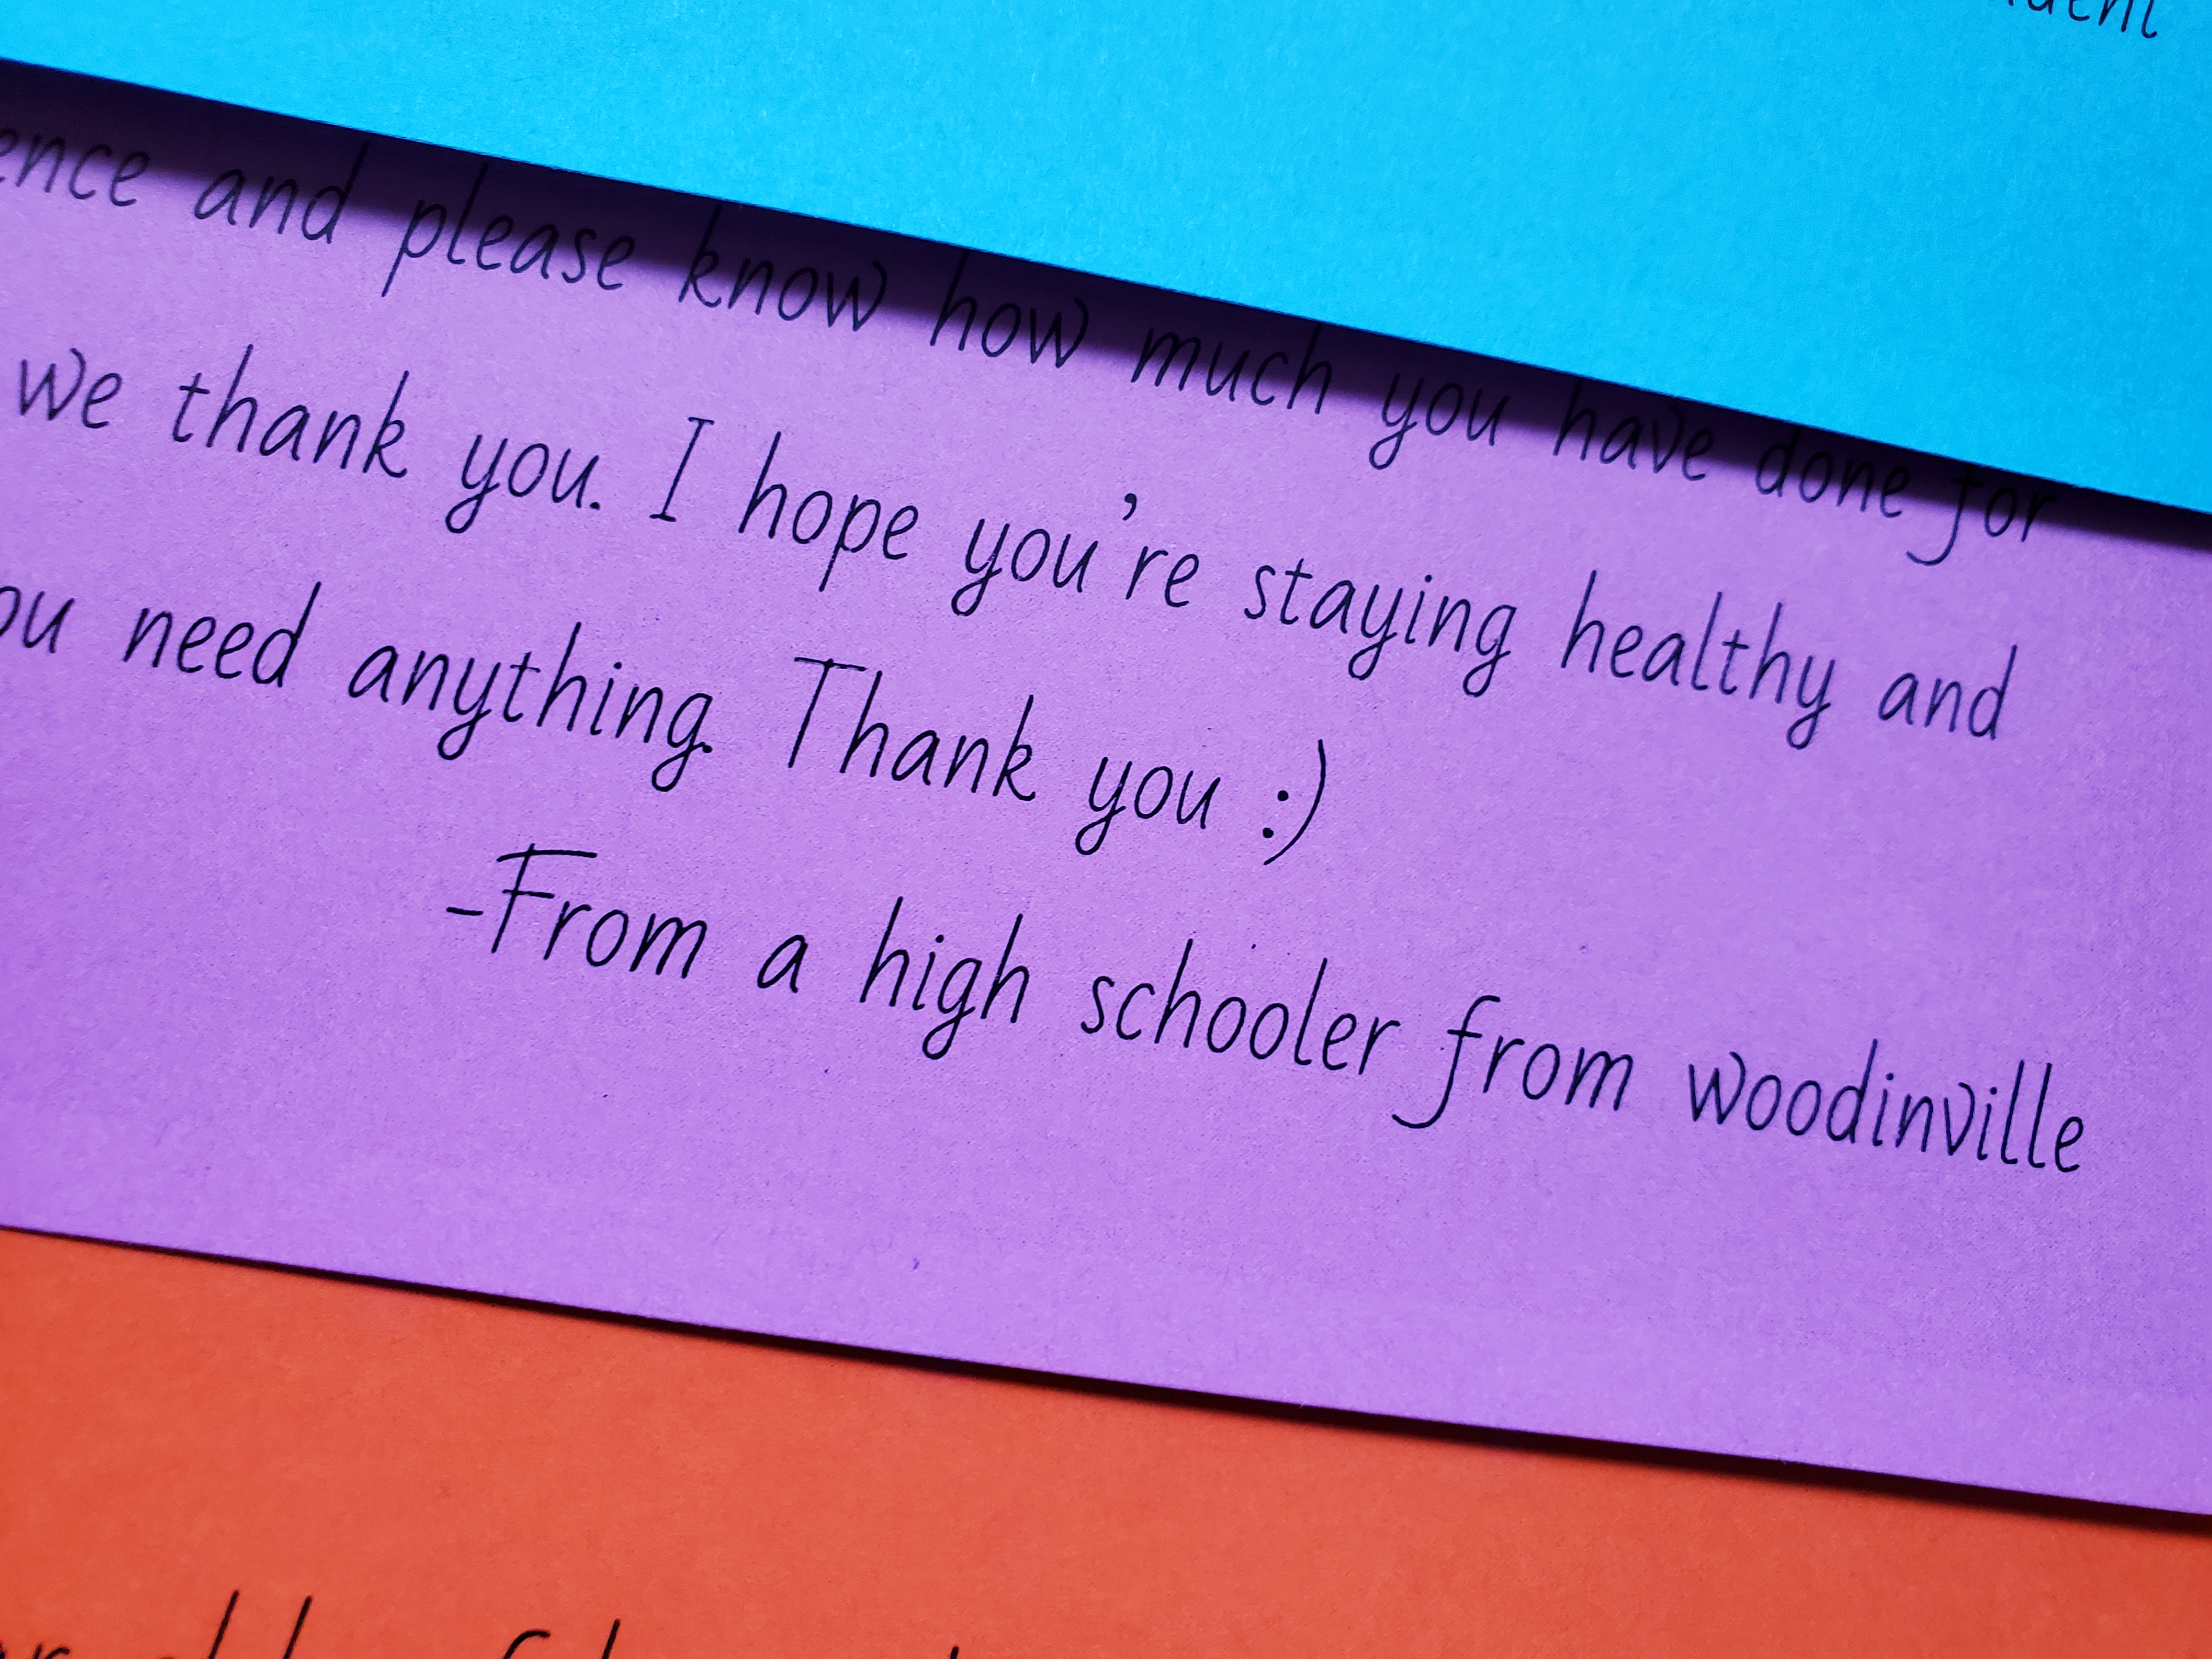 and please know how much you have done for
we thank you. I hope you're staying healthy and
need anything. Thank you :)
-From a high schooler from woodinville